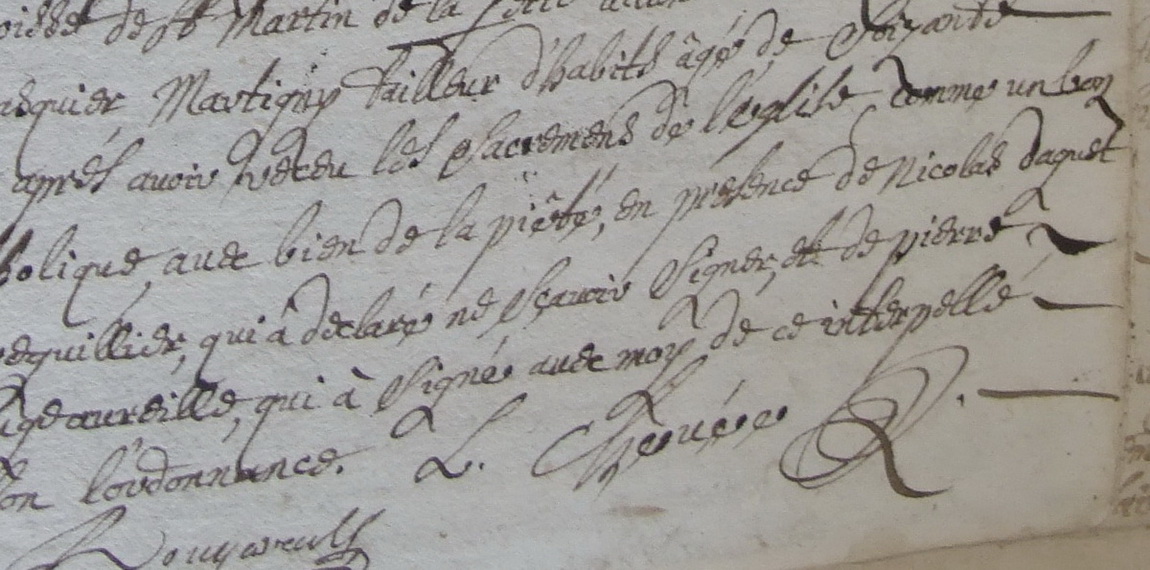 oisse de st Martin de la
asquier Martigny tailleur d'habits âgé de soixante
aprés avoir receu les sacremens de l'eglise comme un bon
holique, avec bien de la piêté, en presence de Nicolas daguet
eguillier, qui â declaré ne sçavoir signer, et de pierre
geaureille, qui â signé avec moy de ce interpellé
lon l'ordonnance. L.